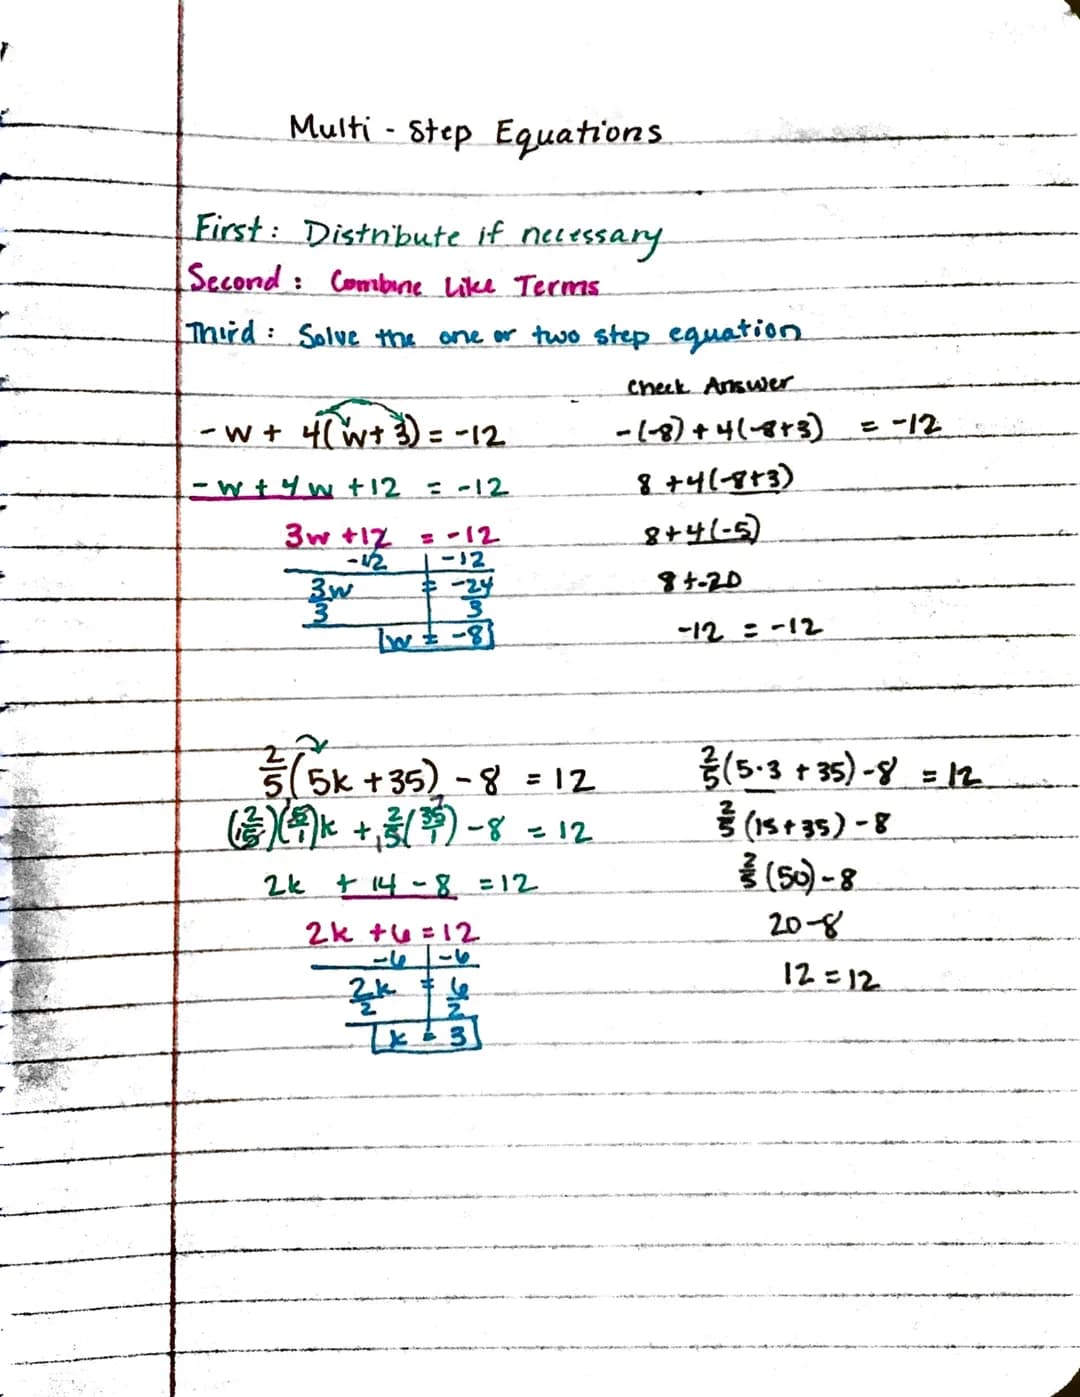 Multi - Step Equations
First: Distribute if necessary
Second: Combine Like Terms
Third: Solve the one or two step equation
Check Answer
-w + 4(w+3) = -12
-w + 4w +12 = -12
3w +12 = -12
-12 | -12
3w/3 = -24/3
w = -8
-(-8) + 4(-8+3) = -12
8 +4(-8+3)
8+4(-5)
8+-20
-12 = -12
2/5(5k +35) -8 = 12
(2/5)(5/1)k + 2/5(35/1) -8 = 12
2k + 14 -8 =12
2k +6 =12
-6 | -6
2k/2 = 6/2
k = 3
2/5(5·3 +35) -8 = 12
2/5(15+35) -8
2/5(50) -8
20-8
12 = 12